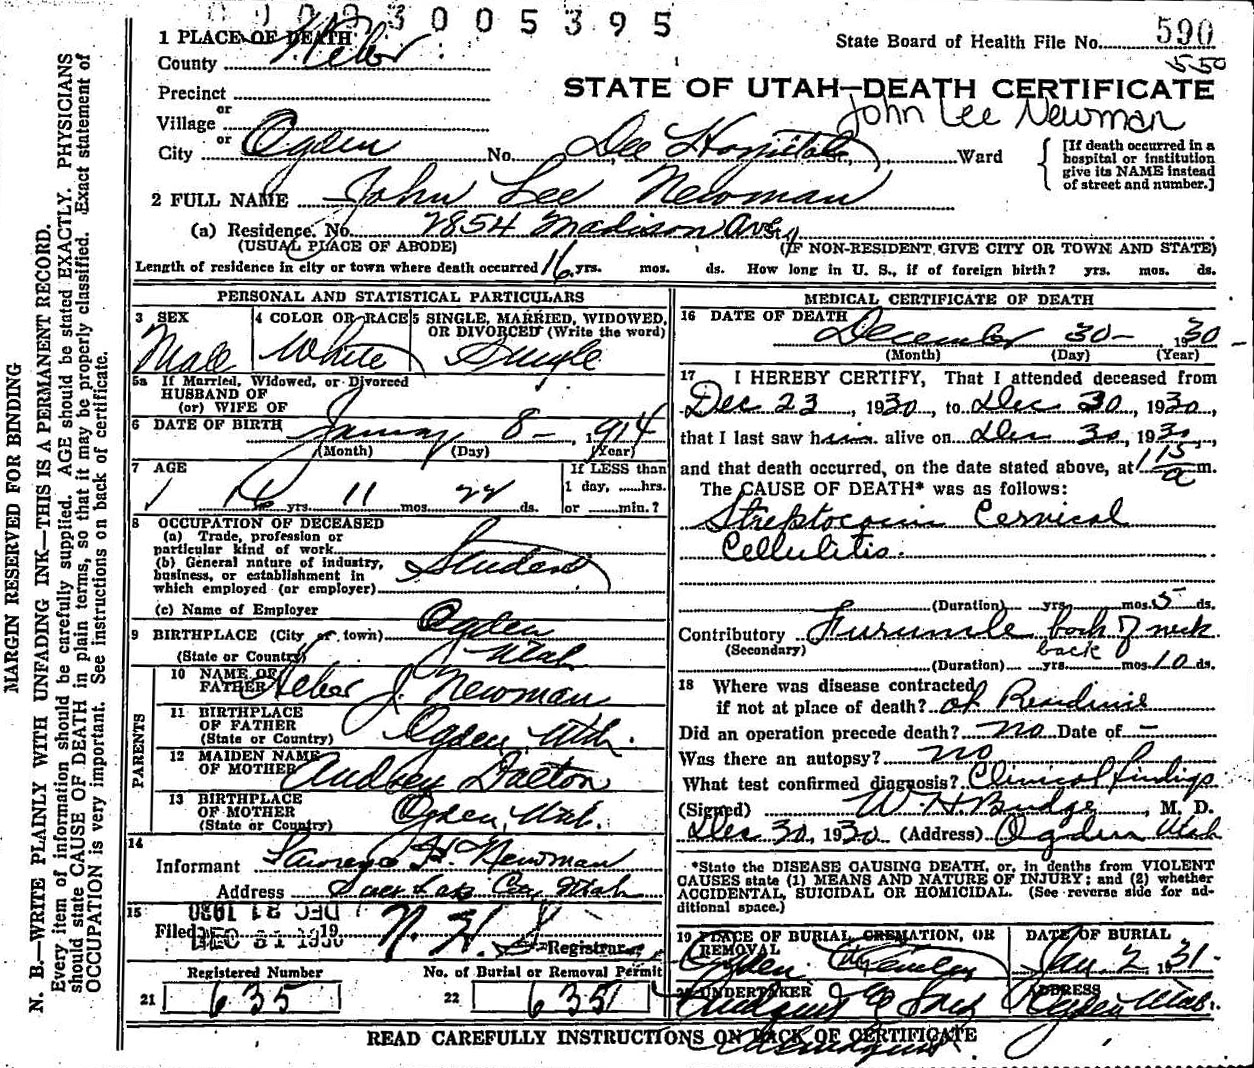 3005395
1 PLACE OF DEATH
County Weber
State Board of Health File No. 590
550
Precinct
STATE OF UTAH—DEATH CERTIFICATE
John Lee Newman
or
Village
or
City Ogden No. Dee Hospital Ward
[If death occurred in a hospital or institution give its NAME instead of street and number.]
2 FULL NAME John Lee Newman
(a) Residence. No. 2854 Madison Ave.
(USUAL PLACE OF ABODE) (IF NON-RESIDENT GIVE CITY OR TOWN AND STATE)
Length of residence in city or town where death occurred 16 yrs. mos. ds. How long in U. S., if of foreign birth? yrs. mos. ds.
PERSONAL AND STATISTICAL PARTICULARS
3 SEX Male
4 COLOR OR RACE White
5 SINGLE, MARRIED, WIDOWED, OR DIVORCED (Write the word) Single
5a If Married, Widowed, or Divorced
HUSBAND OF
(or) WIFE OF
6 DATE OF BIRTH January 8- 1914
(Month) (Day) (Year)
7 AGE 16 yrs. 11 mos. 22 ds.
If LESS than
1 day, hrs.
or min.?
8 OCCUPATION OF DECEASED
(a) Trade, profession or
particular kind of work
(b) General nature of industry,
business, or establishment in
which employed (or employer)
Student
(c) Name of Employer
9 BIRTHPLACE (City or town) Ogden
(State or Country) Utah
PARENTS
10 NAME OF FATHER Heber J. Newman
11 BIRTHPLACE OF FATHER (State or Country) Ogden, Utah.
12 MAIDEN NAME OF MOTHER Audrey Dalton
13 BIRTHPLACE OF MOTHER (State or Country) Ogden, Utah.
14
Informant Lawrence H. Newman
Address Salt Lake City Utah
15
DEC 31 1930
Filed DEC 31 1930 19
N. H.
Registrar
Registered Number
21 635
No. of Burial or Removal Permit
22 6351
MEDICAL CERTIFICATE OF DEATH
16 DATE OF DEATH
December 30- 1930
(Month) (Day) (Year)
17 I HEREBY CERTIFY, That I attended deceased from
Dec 23, 1930, to Dec 30, 1930,
that I last saw him alive on Dec 30, 1930,
and that death occurred, on the date stated above, at 1 15 a m.
The CAUSE OF DEATH* was as follows:
Streptococcic Cervical
Cellulitis.
(Duration) yrs. mos. 5 ds.
Contributory Furuncle back of neck
(Secondary) back
(Duration) yrs. mos. 10 ds.
18 Where was disease contracted
if not at place of death? at Residence
Did an operation precede death? no Date of —
Was there an autopsy? no
What test confirmed diagnosis? Clinical findings
(Signed) W. H. Budge, M. D.
Dec 30, 1930 (Address) Ogden Utah
*State the DISEASE CAUSING DEATH, or, in deaths from VIOLENT
CAUSES state (1) MEANS AND NATURE OF INJURY; and (2) whether
ACCIDENTAL, SUICIDAL OR HOMICIDAL. (See reverse side for additional space.)
19 PLACE OF BURIAL, CREMATION, OR REMOVAL
Ogden
DATE OF BURIAL
Jan. 2 1931-
20 UNDERTAKER
ADDRESS
Ogden Utah.
READ CAREFULLY INSTRUCTIONS ON BACK OF CERTIFICATE
MARGIN RESERVED FOR BINDING
N. B.—WRITE PLAINLY WITH UNFADING INK—THIS IS A PERMANENT RECORD.
Every item of information should be carefully supplied. AGE should be stated EXACTLY. PHYSICIANS
should state CAUSE OF DEATH in plain terms, so that it may be properly classified. Exact statement of
OCCUPATION is very important. See instructions on back of certificate.